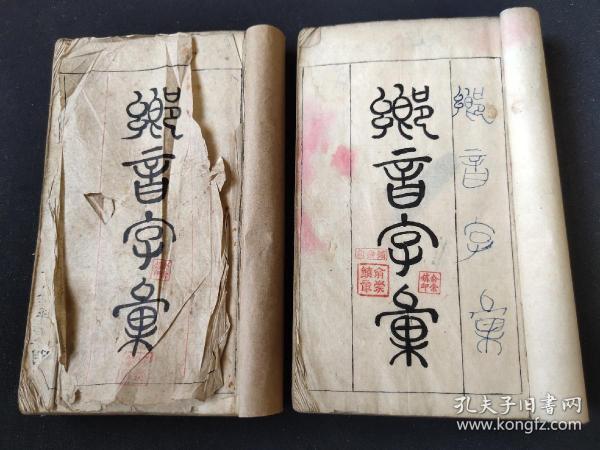 鄉音字彙
鄉音字彙
鄉音字彙
俞崇鎮章
孔夫子旧书网
www.kongfz.com